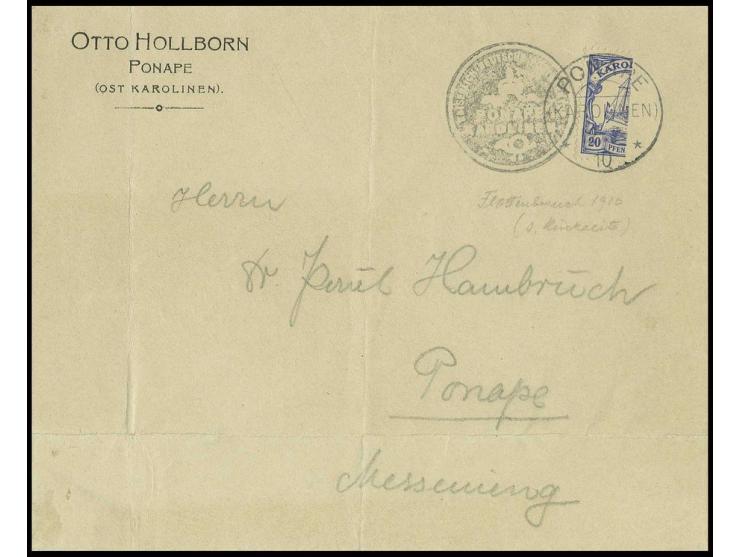 OTTO HOLLBORN
PONAPE
(OST KAROLINEN).
PONAPE
(KAROLINEN)
10
KARO
20 PFEN
Flottenbesuch 1910
(s. Rückseite)
Herrn
Dr. Paul Hambrüch
Ponape
Messenieng